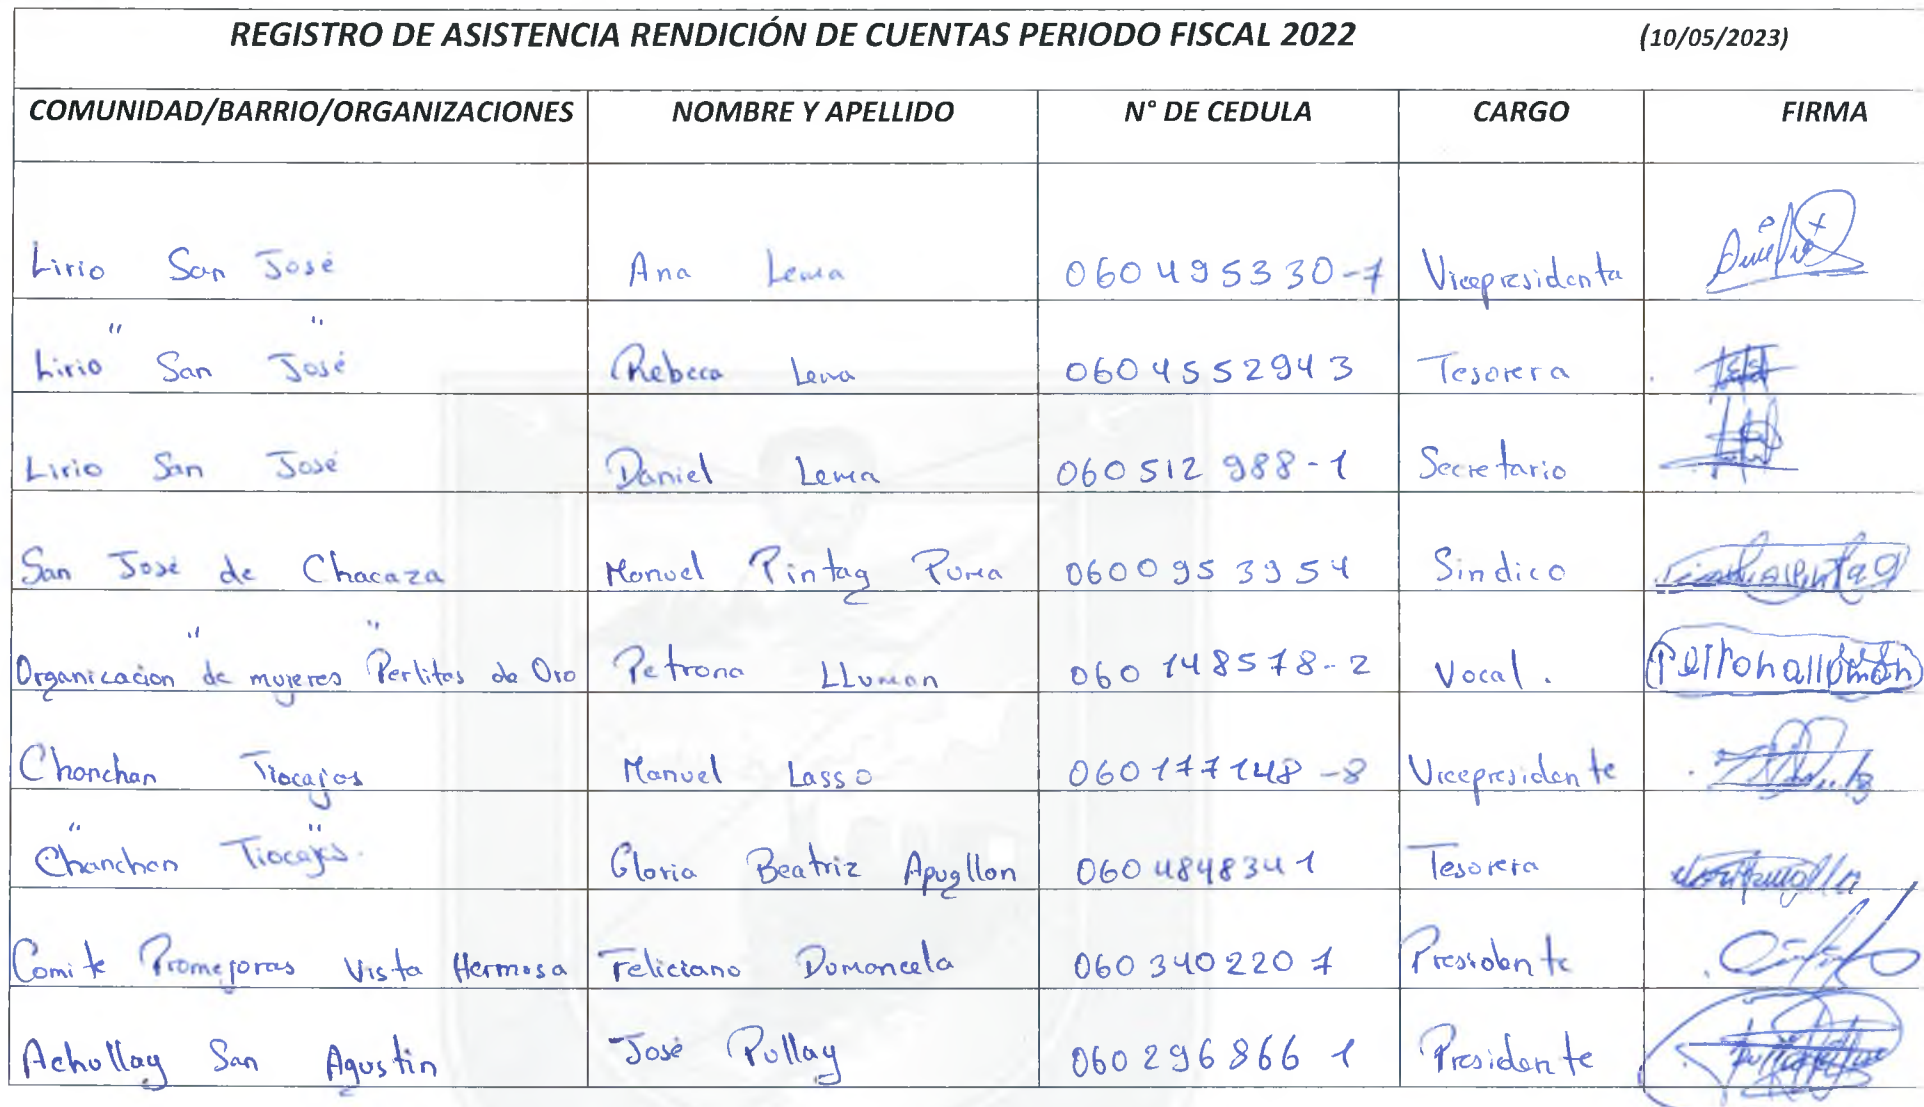 REGISTRO DE ASISTENCIA RENDICIÓN DE CUENTAS PERIODO FISCAL 2022 (10/05/2023)
COMUNIDAD/BARRIO/ORGANIZACIONES NOMBRE Y APELLIDO N° DE CEDULA CARGO FIRMA
Lirio San José Ana Lema 060495330-7 Vicepresidenta
" "
Lirio San José Rebeca Lema 0604552943 Tesorera
Lirio San José Daniel Lema 060512988-1 Secretario
San José de Chacaza Manuel Pintag Puma 0600953954 Sindico
Organizacion "de mujeres "Perlitas de Oro Petrona LLuman 060148578-2 Vocal.
Chanchan Tiocajas Manuel Lasso 060177148-8 Vicepresidente
" "
Chanchan Tiocajas. Gloria Beatriz Apugllon 0604848341 Tesorera
Comite Promejoras Vista Hermosa Feliciano Dumancela 0603402207 Presidente
Achullay San Agustin José Pullay 0602968661 Presidente